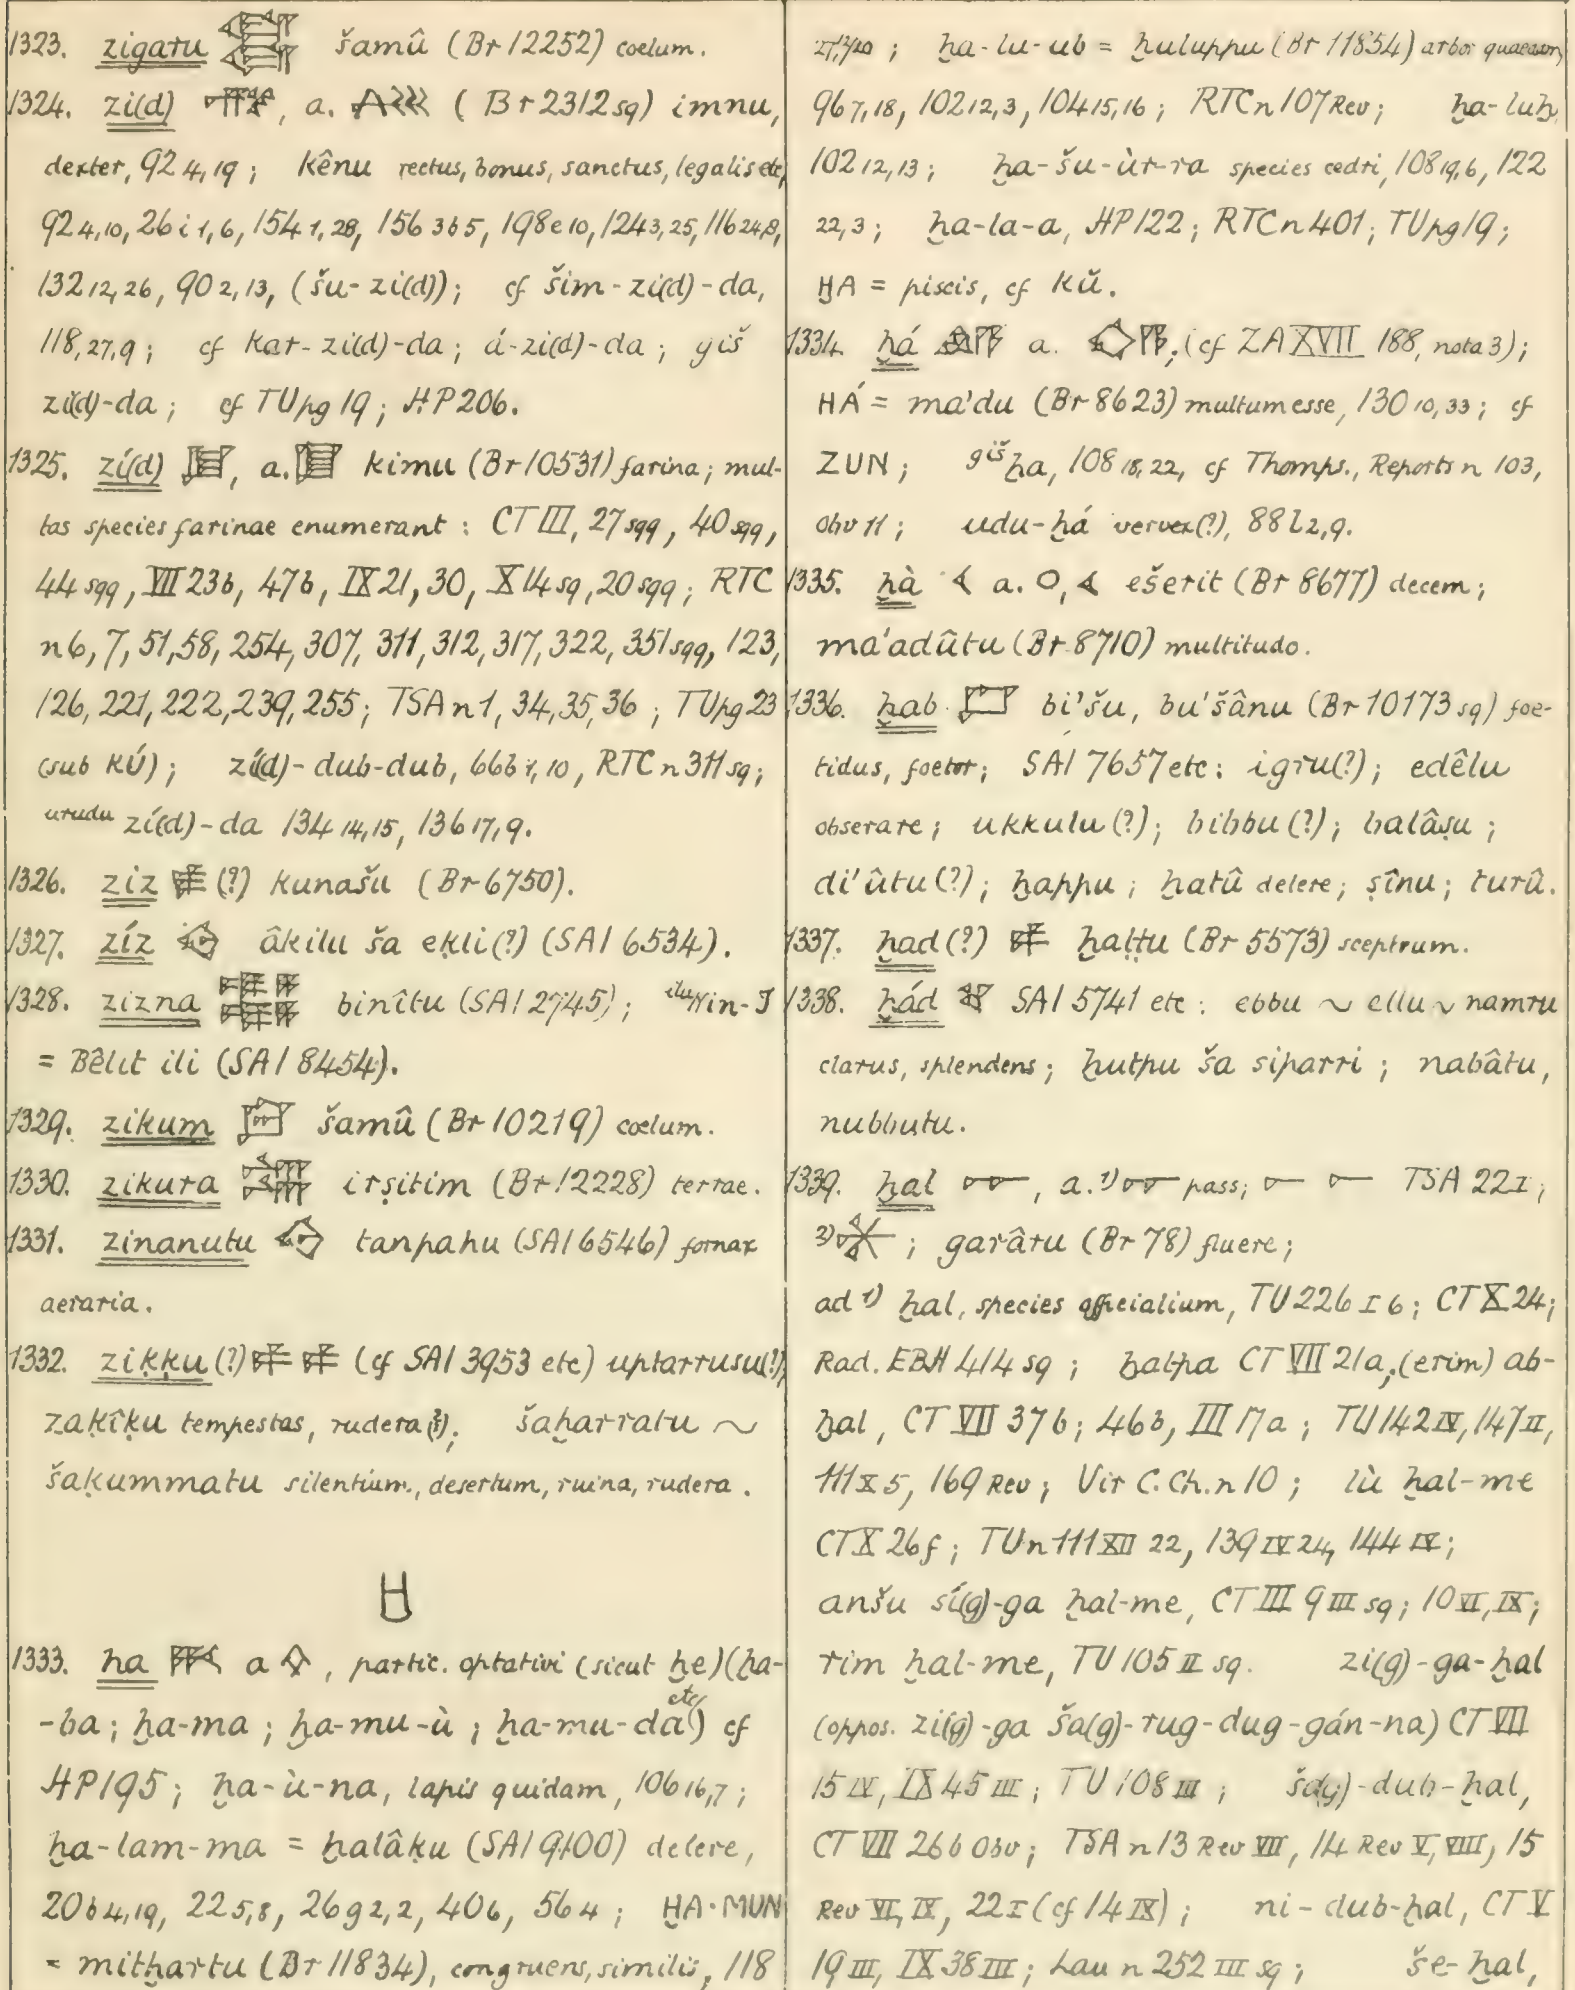 1323. zigaru šamû (Br 12252) coelum.
1324. zi(d) , a. (Br 2312 sq) imnu,
dexter, 92 4,19; kênu rectus, bonus, sanctus, legalis etc,
92 4,10, 26 i 1,6, 154 1,28, 156 3b5, 198 e 10, 124 3,25, 116 24,8,
132 12,26, 90 2,13, (šu-zi(d)); cf šim-zi(d)-da,
118,27,9; cf kar-zi(d)-da; á-zi(d)-da; giš
zi(d)-da; cf TU pg 19; HP 206.
1325. zí(d) , a. kimu (Br 10531) farina; mul-
tas species farinae enumerant: CT III, 27 sqq, 40 sqq,
44 sqq, VII 23b, 47b, IX 21, 30, X 14 sq, 20 sqq; RTC
n 6, 7, 51, 58, 254, 307, 311, 312, 317, 322, 351 sqq, 123,
126, 221, 222, 239, 255; TSA n 1, 34, 35, 36; TU pg 23
(sub KÚ); zí(d)-dub-dub, 66 b 1,10, RTC n 311 sq;
urudu zí(d)-da 134 14,15, 136 17,9.
1326. ziz (?) kunašu (Br 6750).
1327. zíz âkilu ša ekli(?) (SAI 6534).
1328. zizna binîtu (SAI 2745); ilu Nin-J
= Bêlit ili (SAI 8454).
1329. zikum šamû (Br 10219) coelum.
1330. zikura irṣitim (Br 12228) terrae.
1331. zinanutu tanpahu (SAI 6546) fornax
aeraria.
1332. ziḳḳu(?) (cf SAI 3953 etc) uptarrusu(?),
zaḳîḳu tempestas, rudera(?), šaḫarratu ~
šaḳummatu silentium, desertum, ruina, rudera.
Ḫ
1333. ḫa a , partic. optativi (sicut ḫe) (ḫa-
-ba; ḫa-ma; ḫa-mu-ù; ḫa-mu-da etc) cf
HP 195; ḫa-ù-na, lapis quidam, 106 16,7;
ḫa-lam-ma = ḫalâḳu (SAI 9100) delere,
20 b 4,19, 22 5,8, 26 g 2,2, 40 b, 56 4; ḪA·MUN
= mitḫartu (Br 11834), congruens, similis, 118
27,1/20; ḫa-lu-ub = ḫuluppu (Br 11854) arbor quaedam,
96 7,18, 102 12,3, 104 15,16; RTC n 107 Rev; ḫa-luḫ,
102 12,13; ḫa-šu-ùr-ra species cedri, 108 19,6, 122
22,3; ḫa-la-a, HP 122; RTC n 401; TU pg 19;
ḪA = piscis, cf kŭ.
1334. ḫá a. , (cf ZA XVII 188, nota 3);
ḪÁ = ma'du (Br 8623) multum esse, 130 10,33; cf
ZUN; giš ḫa, 108 18,22, cf Thomps., Reports n 103,
Obv 11; udu-ḫá vervex(?), 88 l 2,9.
1335. ḫà a. , ešerit (Br 8677) decem;
ma'adûtu (Br 8710) multitudo.
1336. ḫab bi'šu, bu'šânu (Br 10173 sq) foe-
tidus, foetor; SAI 7657 etc: igru(?); edêlu
obserare; ukkulu(?); bibbu(?); balâṣu;
di'ûtu(?); ḫappu; ḫatû delere; ṣînu; turû.
1337. ḫad(?) ḫaṭṭu (Br 5573) sceptrum.
1338. ḫád SAI 5741 etc: ebbu ~ ellu ~ namru
clarus, splendens; ḫutpu ša siparri; nabâtu,
nubbutu.
1339. ḫal , a. 1) pass; TSA 22 I;
2) ; garâru (Br 78) fluere;
ad 1) ḫal, species officialium, TU 226 I 6; CT X 24;
Rad. EBH 414 sq; ḫalpa CT VII 21a, (erim) ab-
ḫal, CT VII 37b; 46b, III 17a; TU 142 IV, 147 II,
111 X 5, 169 Rev; Vir C. Ch. n 10; lù ḫal-me
CT X 26f; TU n 111 XII 22, 139 IV 24, 144 IV;
anšu sí(g)-ga ḫal-me, CT III 9 III sq; 10 VI, IX;
rim ḫal-me, TU 105 II sq. zi(g)-ga-ḫal
(oppos. zi(g)-ga ša(g)-rug-dug-gán-na) CT VII
15 IV, IX 45 III; TU 108 III; ša(g)-dub-ḫal,
CT VII 26 b Obv; TSA n 13 Rev VII, 14 Rev V, VIII, 15
Rev VI, IX, 22 I (cf 14 IX); ni-dub-ḫal, CT V
19 III, IX 38 III; Lau n 252 III sq; še-ḫal,